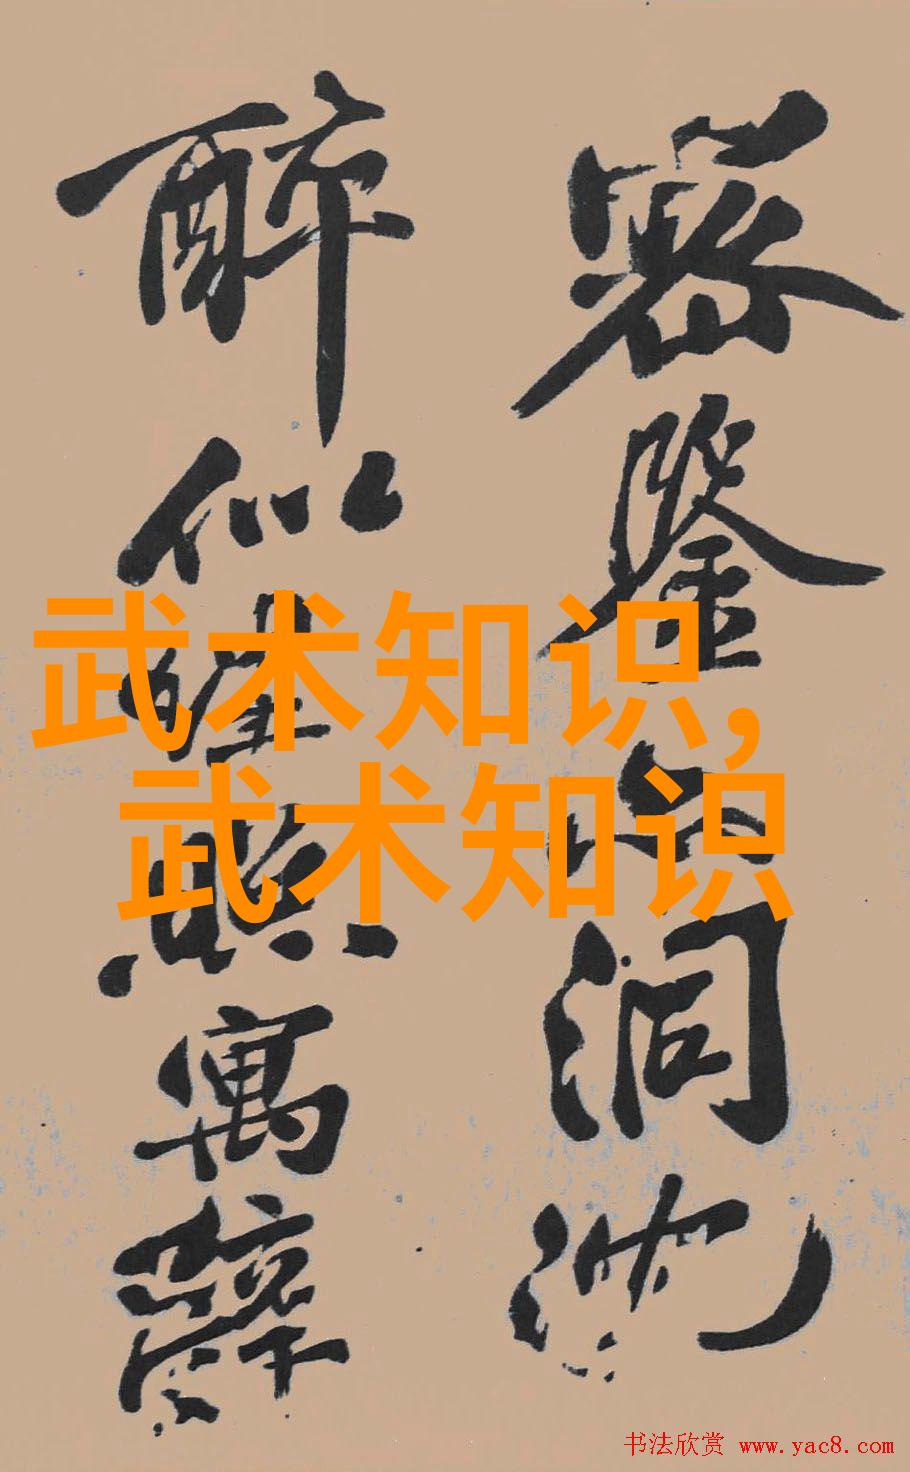 密鉴洞
醉似照寓辞
武术知识,
武术知识
书法欣赏 www.yac8.com